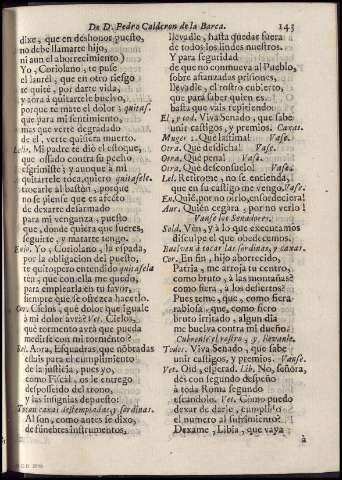 De D. Pedro Calderon de la Barca. 143
dixe, que en deshonor puesto,
no debe llamarte hijo,
ni aun el aborrecimiento)
Yo, Coriolano, te puse
el laurèl; que en otro riesgo
te quitè, por darte vida,
y aora à quitartele buelvo,
porque te mate el dolor: quitas.
que para mi sentimiento,
mas que verte degradado
de èl, verte quisiera muerto.
Mi padre te diò el estoque,
que ossado contra su pecho
esgrimiste; y aunque à mì
quitartele toca, quiero quitasele
trocarle al baston, porque
no se piense que es afecto
de dexarte desarmado,
para mi venganza, puesto
que, donde quiera que fueres,
seguirte, y matarte tengo.
Yo, Coriolano, la espada,
por la obligacion del puesto,
te quito, pero entendido quitasela
que con ella me quedo,
para emplearla en tu favor,
siempre que se ofrezca hacerlo.
Cor. Cielos, què dolor que iguale
à mi dolor avrà? Vet. Cielos,
què tormento avrà que pueda
medirse con mi tormento?
Rel. Aora, Esquadras, que nõbradas
estais para el cumplimiento
de la justicia, pues yo,
como Fiscal, os le entrego
desposseido del trono,
y las insignias depuesto:
Tocan caxas destempladas, y sordinas.
Al son, como antes se dixo,
de funebres instrumentos,
llevadle, hasta quedar fuera
de todos los lindes nuestros.
Y para seguridad
de que no commueva al Pueblo,
sobre afianzadas prisiones,
llevadle, el rostro cubierto,
que para saber quien es
basta que vais repitiendo:
El, y tod. Viva Senado, que sabe
unir castigos, y premios. Caxas.
Muger 1. Què lastima! Vase.
Otra. Què desdicha! Vase.
Otra. Què pena! Vase.
Otra. Què desconsuelo! Vase.
Lel. Retireme, no se entienda,
que en su castigo me vengo. Vase.
En. Quiè, por no oirlo, ensordeciera!
Aur. Quièn cegara, por no verlo!
Vanse los Senadores.
Sold. Vèn, y à lo que executamos
disculpe el que obedecemos.
Buelven à tocar las sordinas, y caxas.
Cor. En fin, hijo aborrecido,
Patria, me arroja tu centro,
como bruto, à las montañas?
como fiera, à los desiertos?
Pues teme, que, como fiera
rabiosa, que, como fiero
bruto irritado, algun dia
me buelva contra mi dueño?
Cubrenle el rostro, y llevanle.
Todos. Viva Senado, que sabe
unir castigos, y premios. Vanse.
Vet. Oid, esperad. Lib. No, señora,
dès con segundo despeño
à toda Roma segundo
escandolo. Vet. Como puedo
dexar de darle, cumplido
el numero al sufrimiento?
Dexame, Libia, que vaya
à